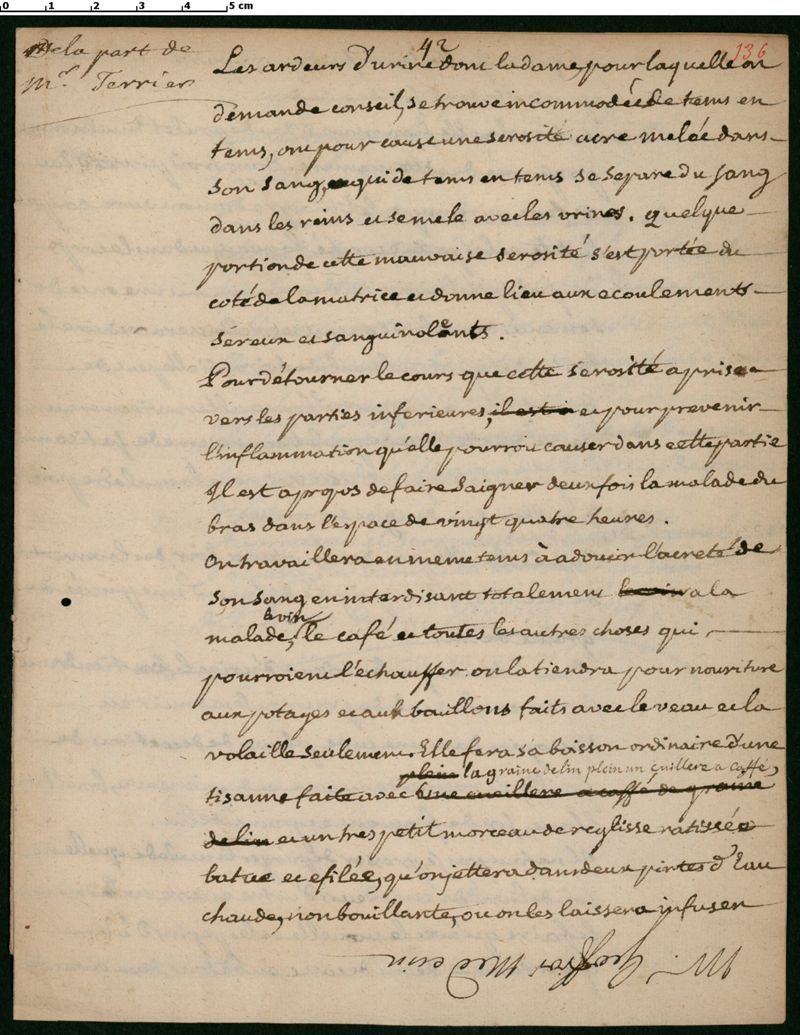 0 1 2 3 4 5 cm
De la part de
mr. Terrier
42
136
Les ardeurs d'urine dont la dame, pour laquelle on
demande conseil, se trouve incommodée de tems en
tems, ont pour cause une serosité acre melée dans
son sang, et qui de tems en tems se separe du sang
dans les reins et se mele avec les urines. quelque
portion de cette mauvaise serosité s'est portée du
coté de la matrice et donne lieu aux ecoulements
séreux et sanguinolents.
Pour détourner le cours que cette serosité a prise
vers les parties inferieures, il est a et pour prevenir
l'inflammation qu'elle pourroit causer dans cette partie
Il est apropos de faire saigner deux fois la malade du
bras dans l'espace de vingt quatre heures.
On travaillera en meme tems à adoucir l'acreté de
son sang en interdisant totalement le vin a la
le vin
malade, le café et toutes les autres choses qui
pourroient l'echauffer. on la tiendra pour nouriture
aux potages et aux baillons faits avec le veau et la
volaille seulement. Elle fera sa boisson ordinaire d'une
plein la graine de lin plein un cuillere a caffé,
tisanne faite avec une cueillere a caffé de graine
de lin et un tres petit morceau de reglisse ratissée
batue et efilée, qu'on jettera dans deux pintes d'Eau
chaude, non bouillante, ou on les laissera infuser
Mr. Medecin